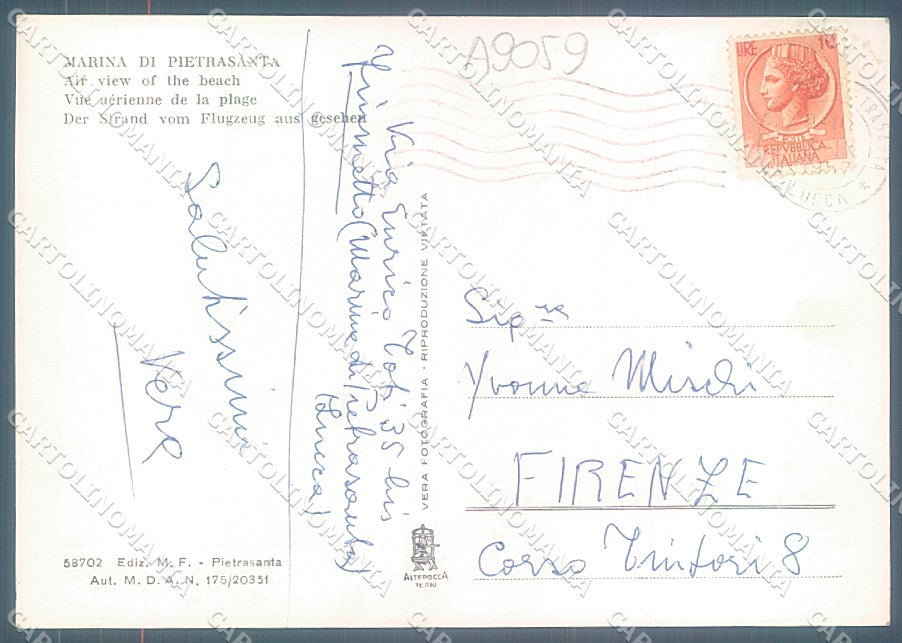 MARINA DI PIETRASANTA
Air view of the beach
Vue aérienne de la plage
Der Strand vom Flugzeug aus gesehen
A9059
Salutissimi
Vera
Via Enrico Toti 35 bis
Fiumetto (Marina di Pietrasanta)
(Lucca)
VERA FOTOGRAFIA - RIPRODUZIONE VIETATA
LIRE 10
POSTE
REPVBBLICA
ITALIANA
LUCCA
Sig.ra
Yvonne Mischi
FIRENZE
Corso Tintori 8
58702 Ediz. M. F. - Pietrasanta
Aut. M. D. A. N. 175/20351
ALTEROCCA
TERNI
CARTOLINOMANIA